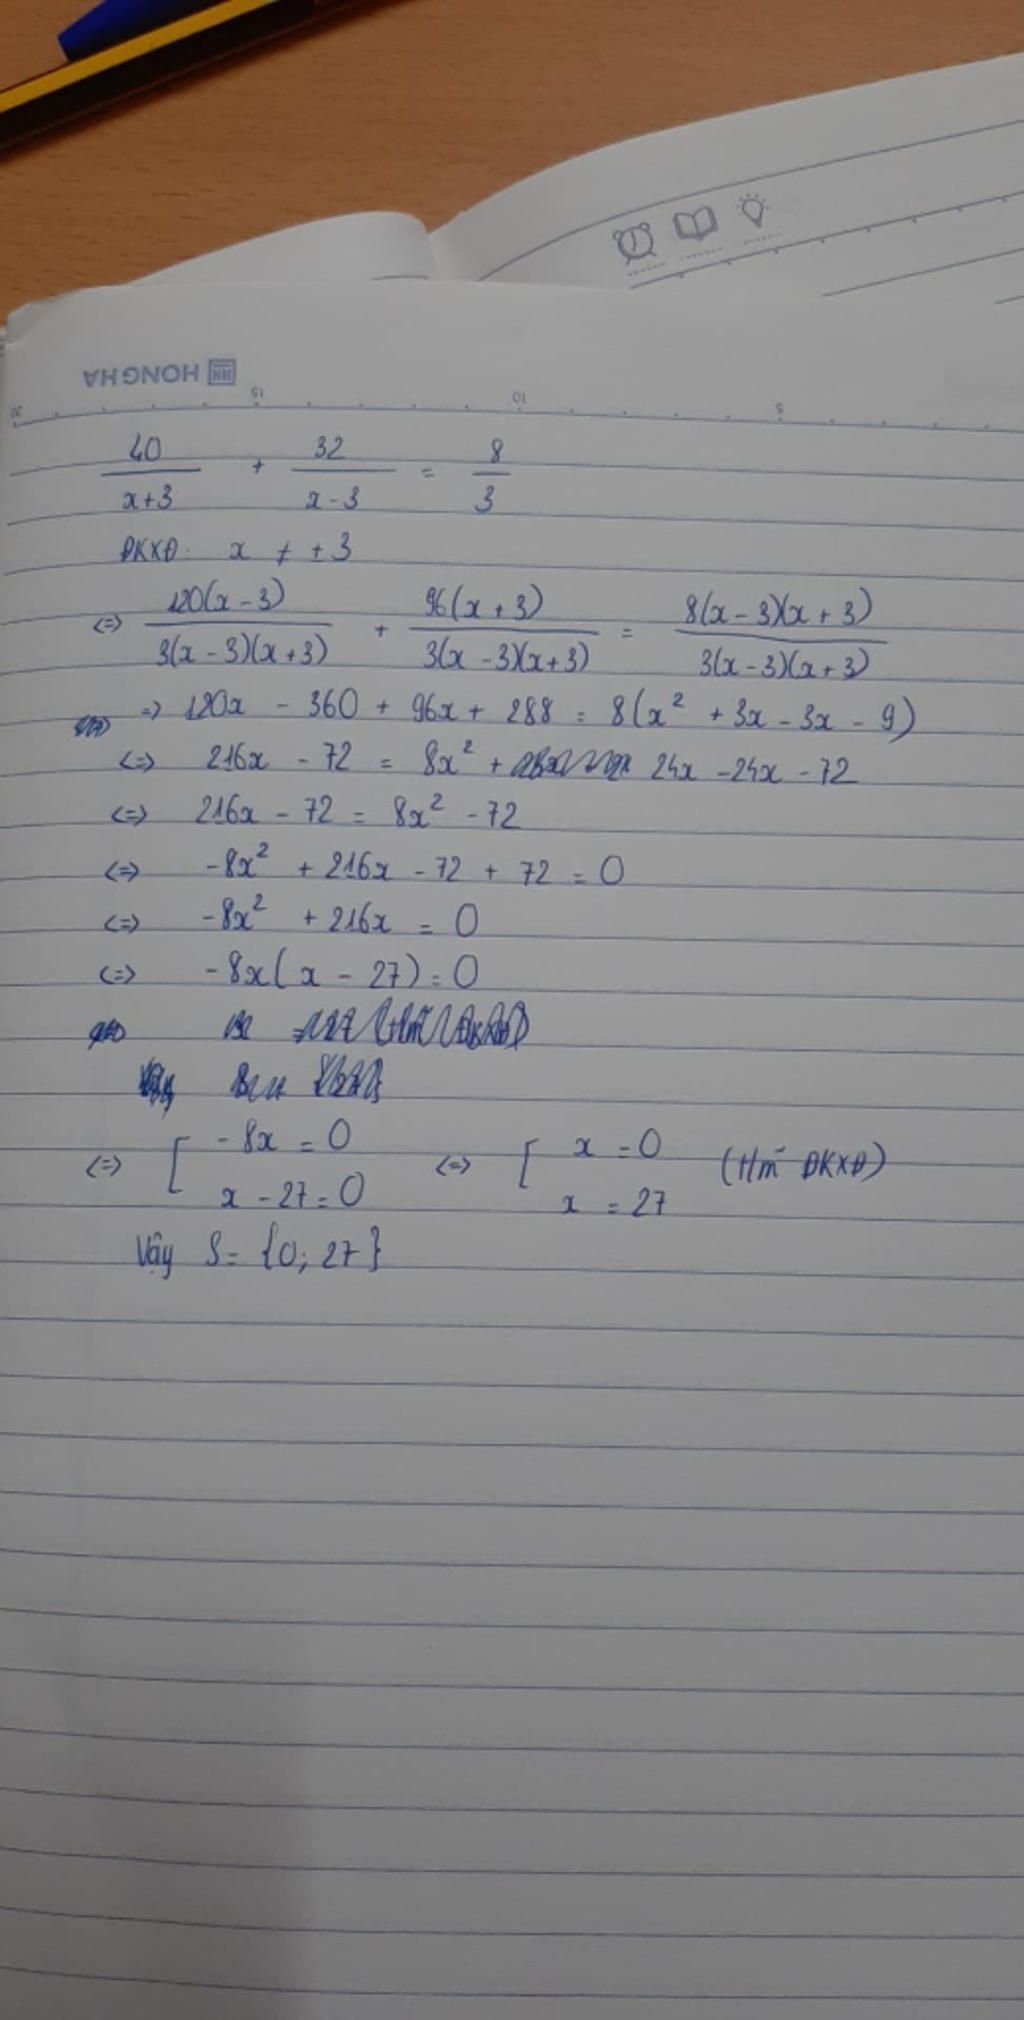 HONG HA
20 15 10 5
40/(x+3) + 32/(x-3) = 8/3
ĐKXĐ: x ≠ ±3
<=> 120(x-3)/3(x-3)(x+3) + 96(x+3)/3(x-3)(x+3) = 8(x-3)(x+3)/3(x-3)(x+3)
=> 120x - 360 + 96x + 288 = 8(x² + 3x - 3x - 9)
<=> 216x - 72 = 8x² + 24x - 24x - 72
<=> 216x - 72 = 8x² - 72
<=> -8x² + 216x - 72 + 72 = 0
<=> -8x² + 216x = 0
<=> -8x(x - 27) = 0
<=> [ -8x = 0 <=> [ x = 0 (tm ĐKXĐ)
x - 27 = 0 x = 27
Vậy S = {0; 27}